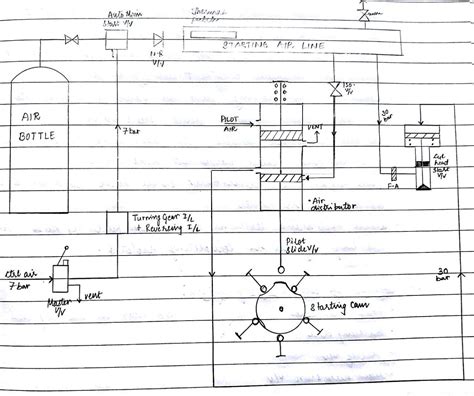 Auto Main
Start V/V
N-R
V/V
STARTING AIR LINE
ISO.
V/V
AIR
BOTTLE
PILOT
AIR
VENT
30
bar
7 bar
Cyl
head
Start
V/V
F-A
Air
distributor
Turning Gear I/L
+ Reversing I/L
Pilot
slide V/V
ctrl air
7 bar
vent
Master
V/V
30
bar
Starting Cam